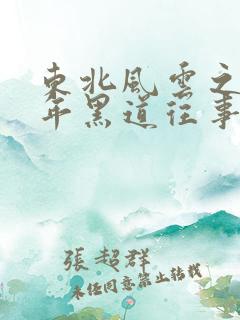 東北風雲之
年黑道往事
張超群
未经同意禁止转载